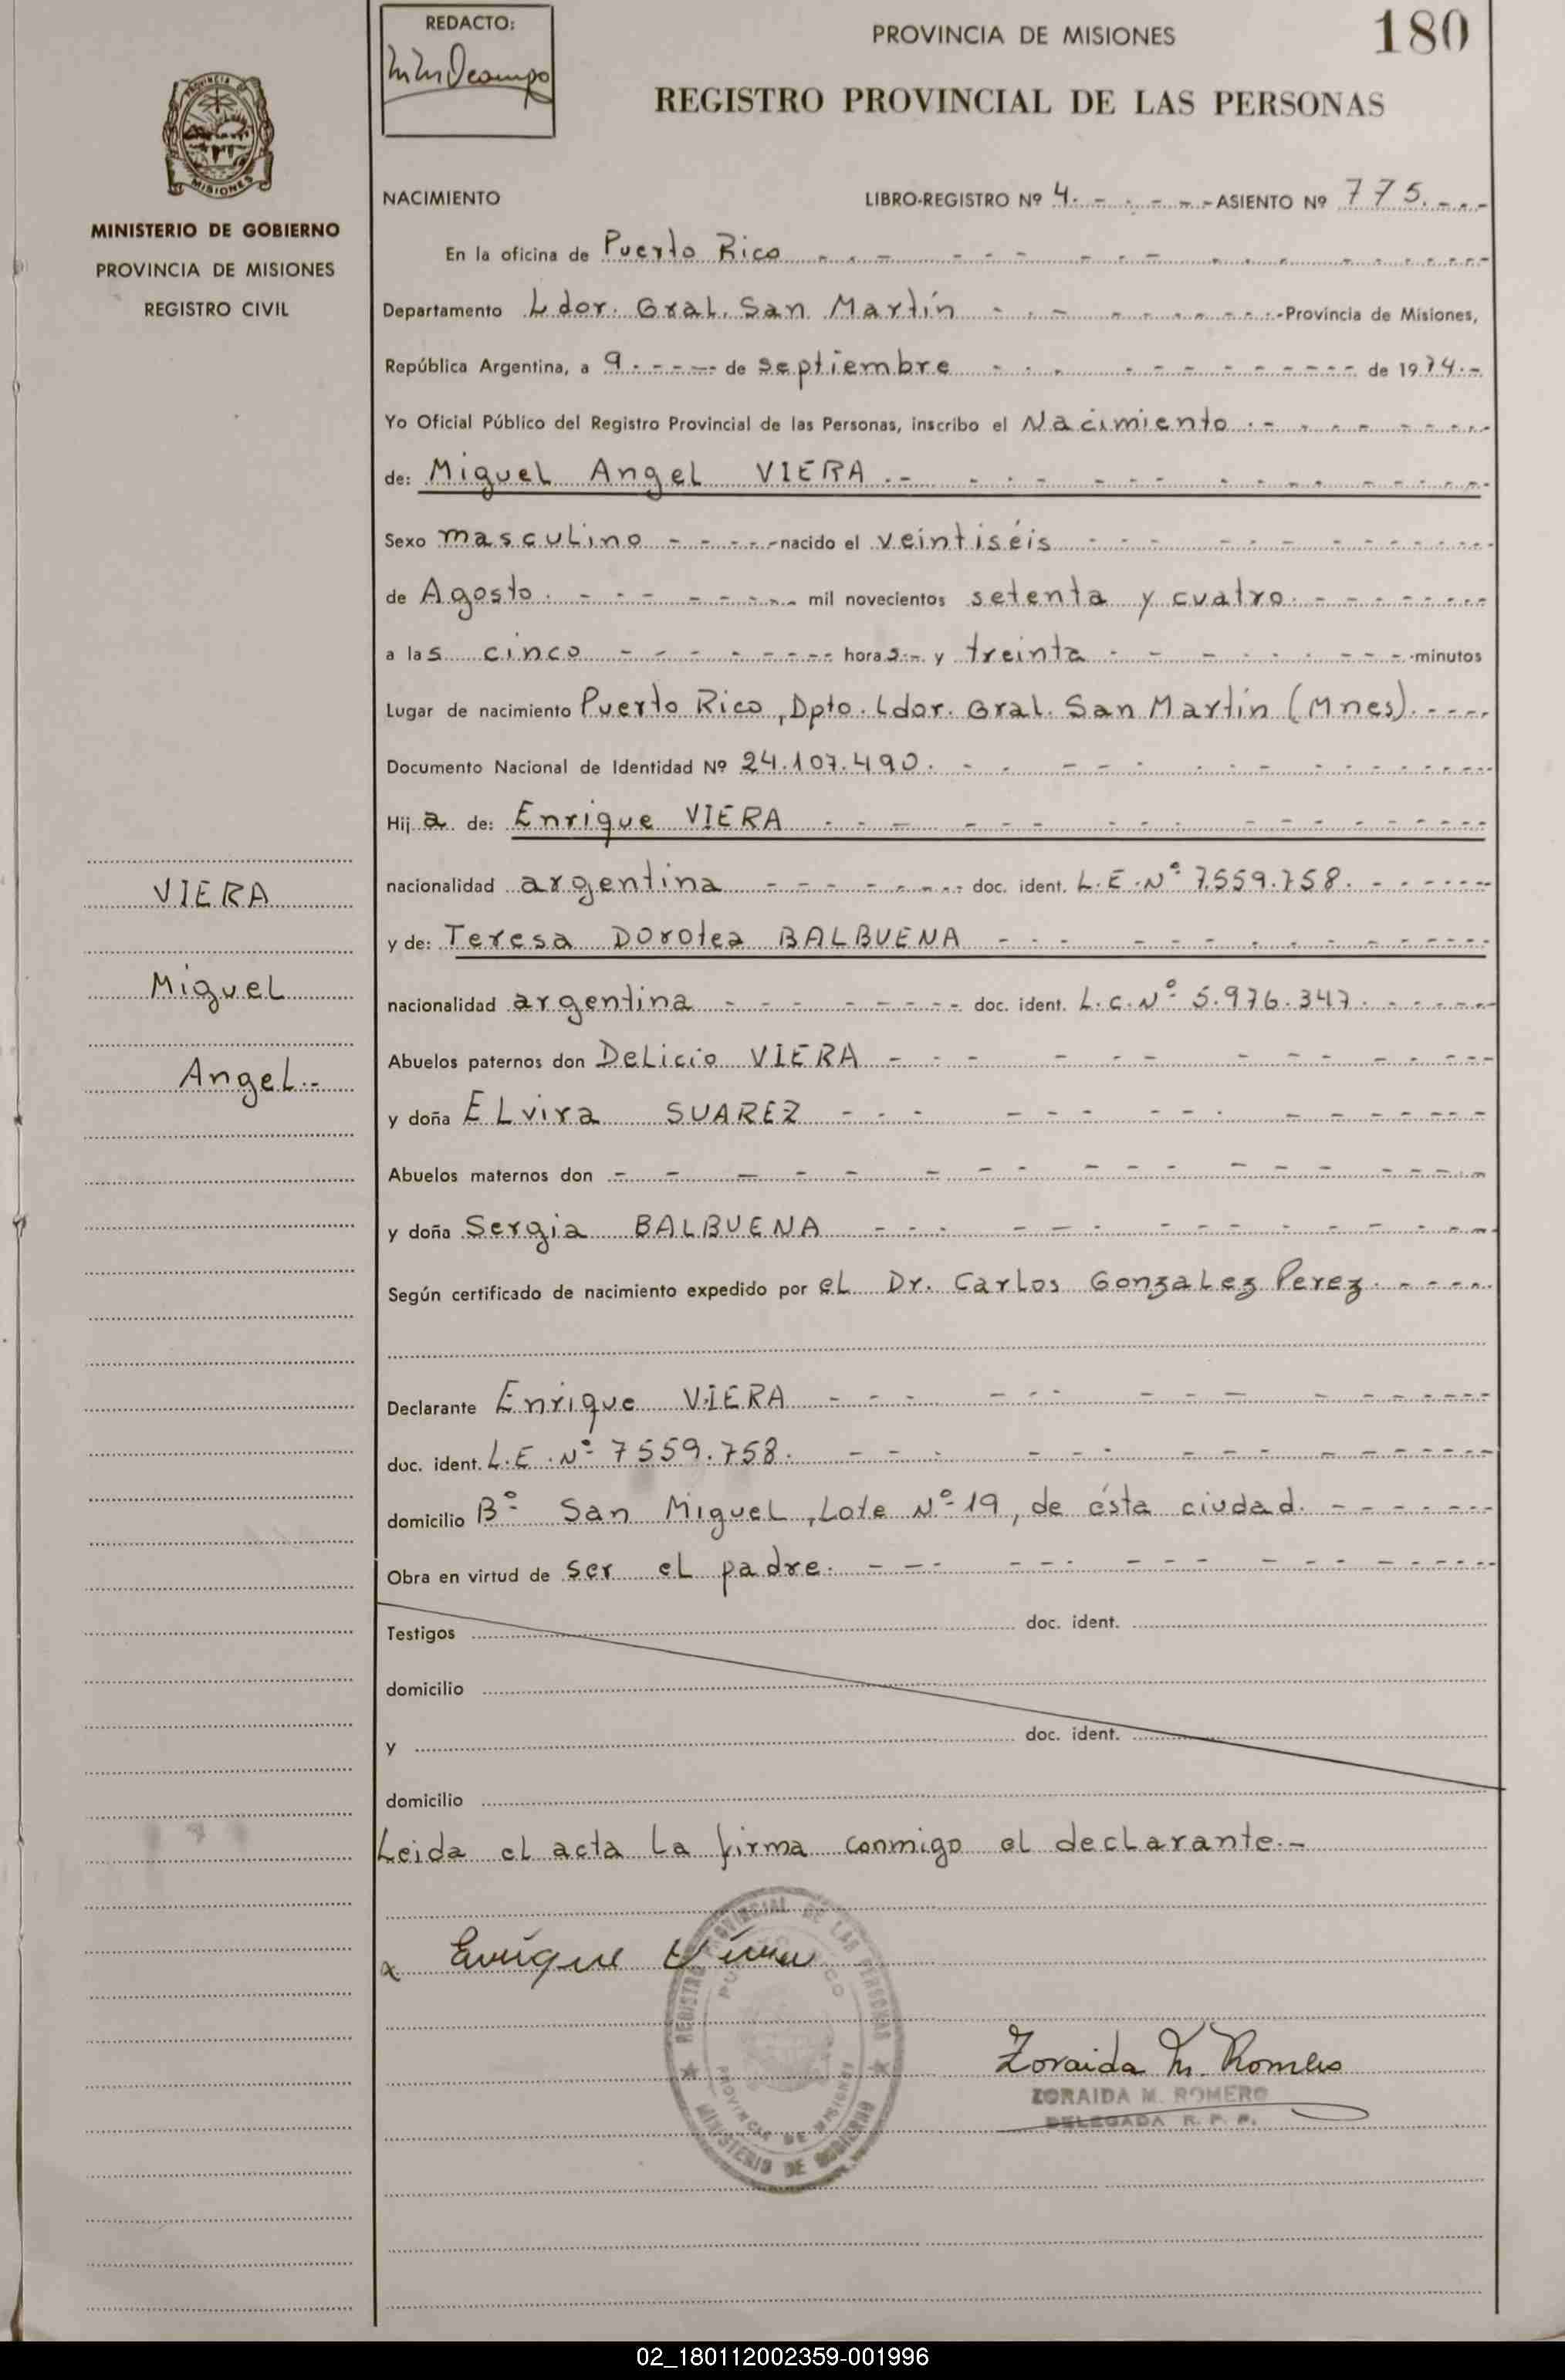 REDACTO:
MMOcampo
PROVINCIA DE MISIONES
180
REGISTRO PROVINCIAL DE LAS PERSONAS
MISIONES
MINISTERIO DE GOBIERNO
PROVINCIA DE MISIONES
REGISTRO CIVIL
NACIMIENTO LIBRO-REGISTRO Nº 4. ASIENTO Nº 775.
En la oficina de Puerto Rico
Departamento Ldor. Gral. San Martín Provincia de Misiones,
República Argentina, a 9 de septiembre de 1974.
Yo Oficial Público del Registro Provincial de las Personas, inscribo el Nacimiento
de: Miguel Angel VIERA
Sexo masculino nacido el veintiséis
de Agosto. mil novecientos setenta y cuatro.
a las cinco horas y treinta minutos
Lugar de nacimiento Puerto Rico, Dpto. Ldor. Gral. San Martín (Mnes).
Documento Nacional de Identidad Nº 24.107.490.
Hij a de: Enrique VIERA
nacionalidad argentina doc. ident. L.E. Nº 7.559.758.
y de: Teresa Dorotea BALBUENA
nacionalidad argentina doc. ident. L.C. Nº 5.976.347.
Abuelos paternos don Delicio VIERA
y doña Elvira SUAREZ
Abuelos maternos don
y doña Sergia BALBUENA
Según certificado de nacimiento expedido por el Dr. Carlos Gonzalez Perez.
Declarante Enrique VIERA
doc. ident. L.E. Nº 7559.758.
domicilio Bº San Miguel, Lote Nº 19, de ésta ciudad.
Obra en virtud de ser el padre.
Testigos doc. ident.
domicilio
y doc. ident.
domicilio
Leida el acta la firma conmigo el declarante.-
VIERA
Miguel
Angel.-
x Enrique Viera
REGISTRO PROVINCIAL DE LAS PERSONAS
PUERTO RICO
PROVINCIA DE MISIONES
MINISTERIO DE GOBIERNO
Zoraida M. Romero
ZORAIDA M. ROMERO
DELEGADA R. P. P.
02_180112002359-001996